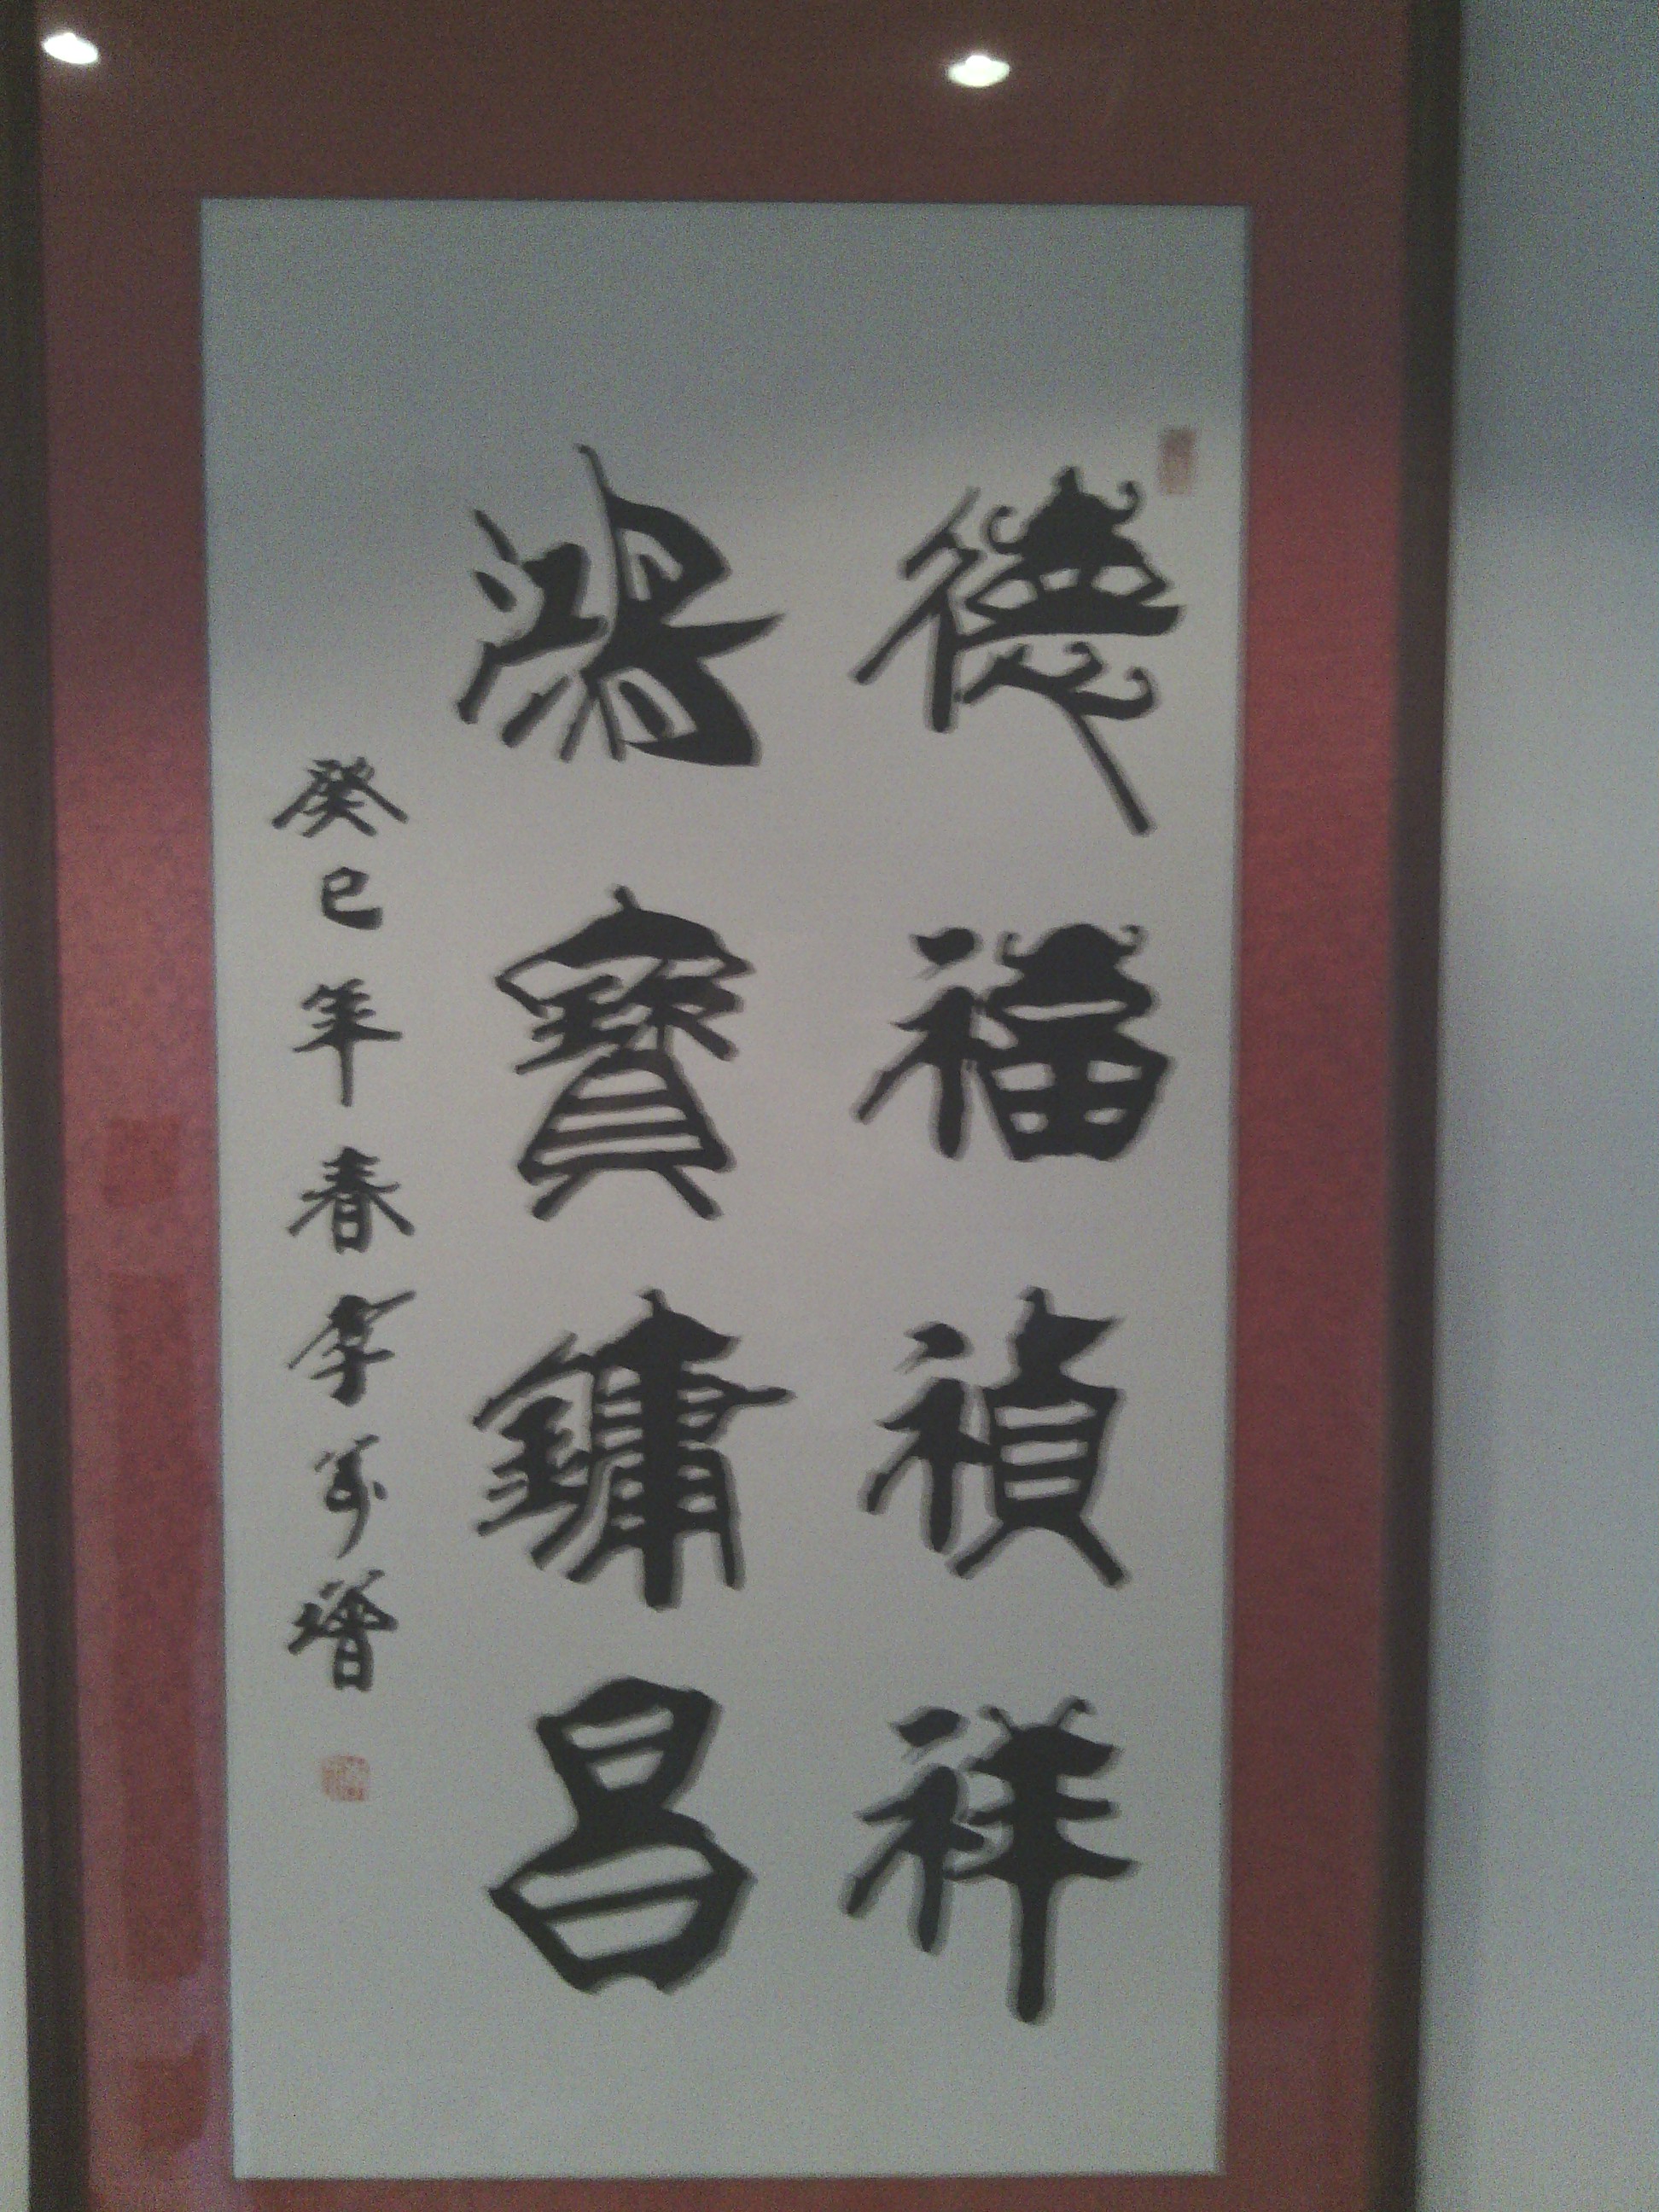 德福禎祥
鴻寶鏞昌
癸巳年春李